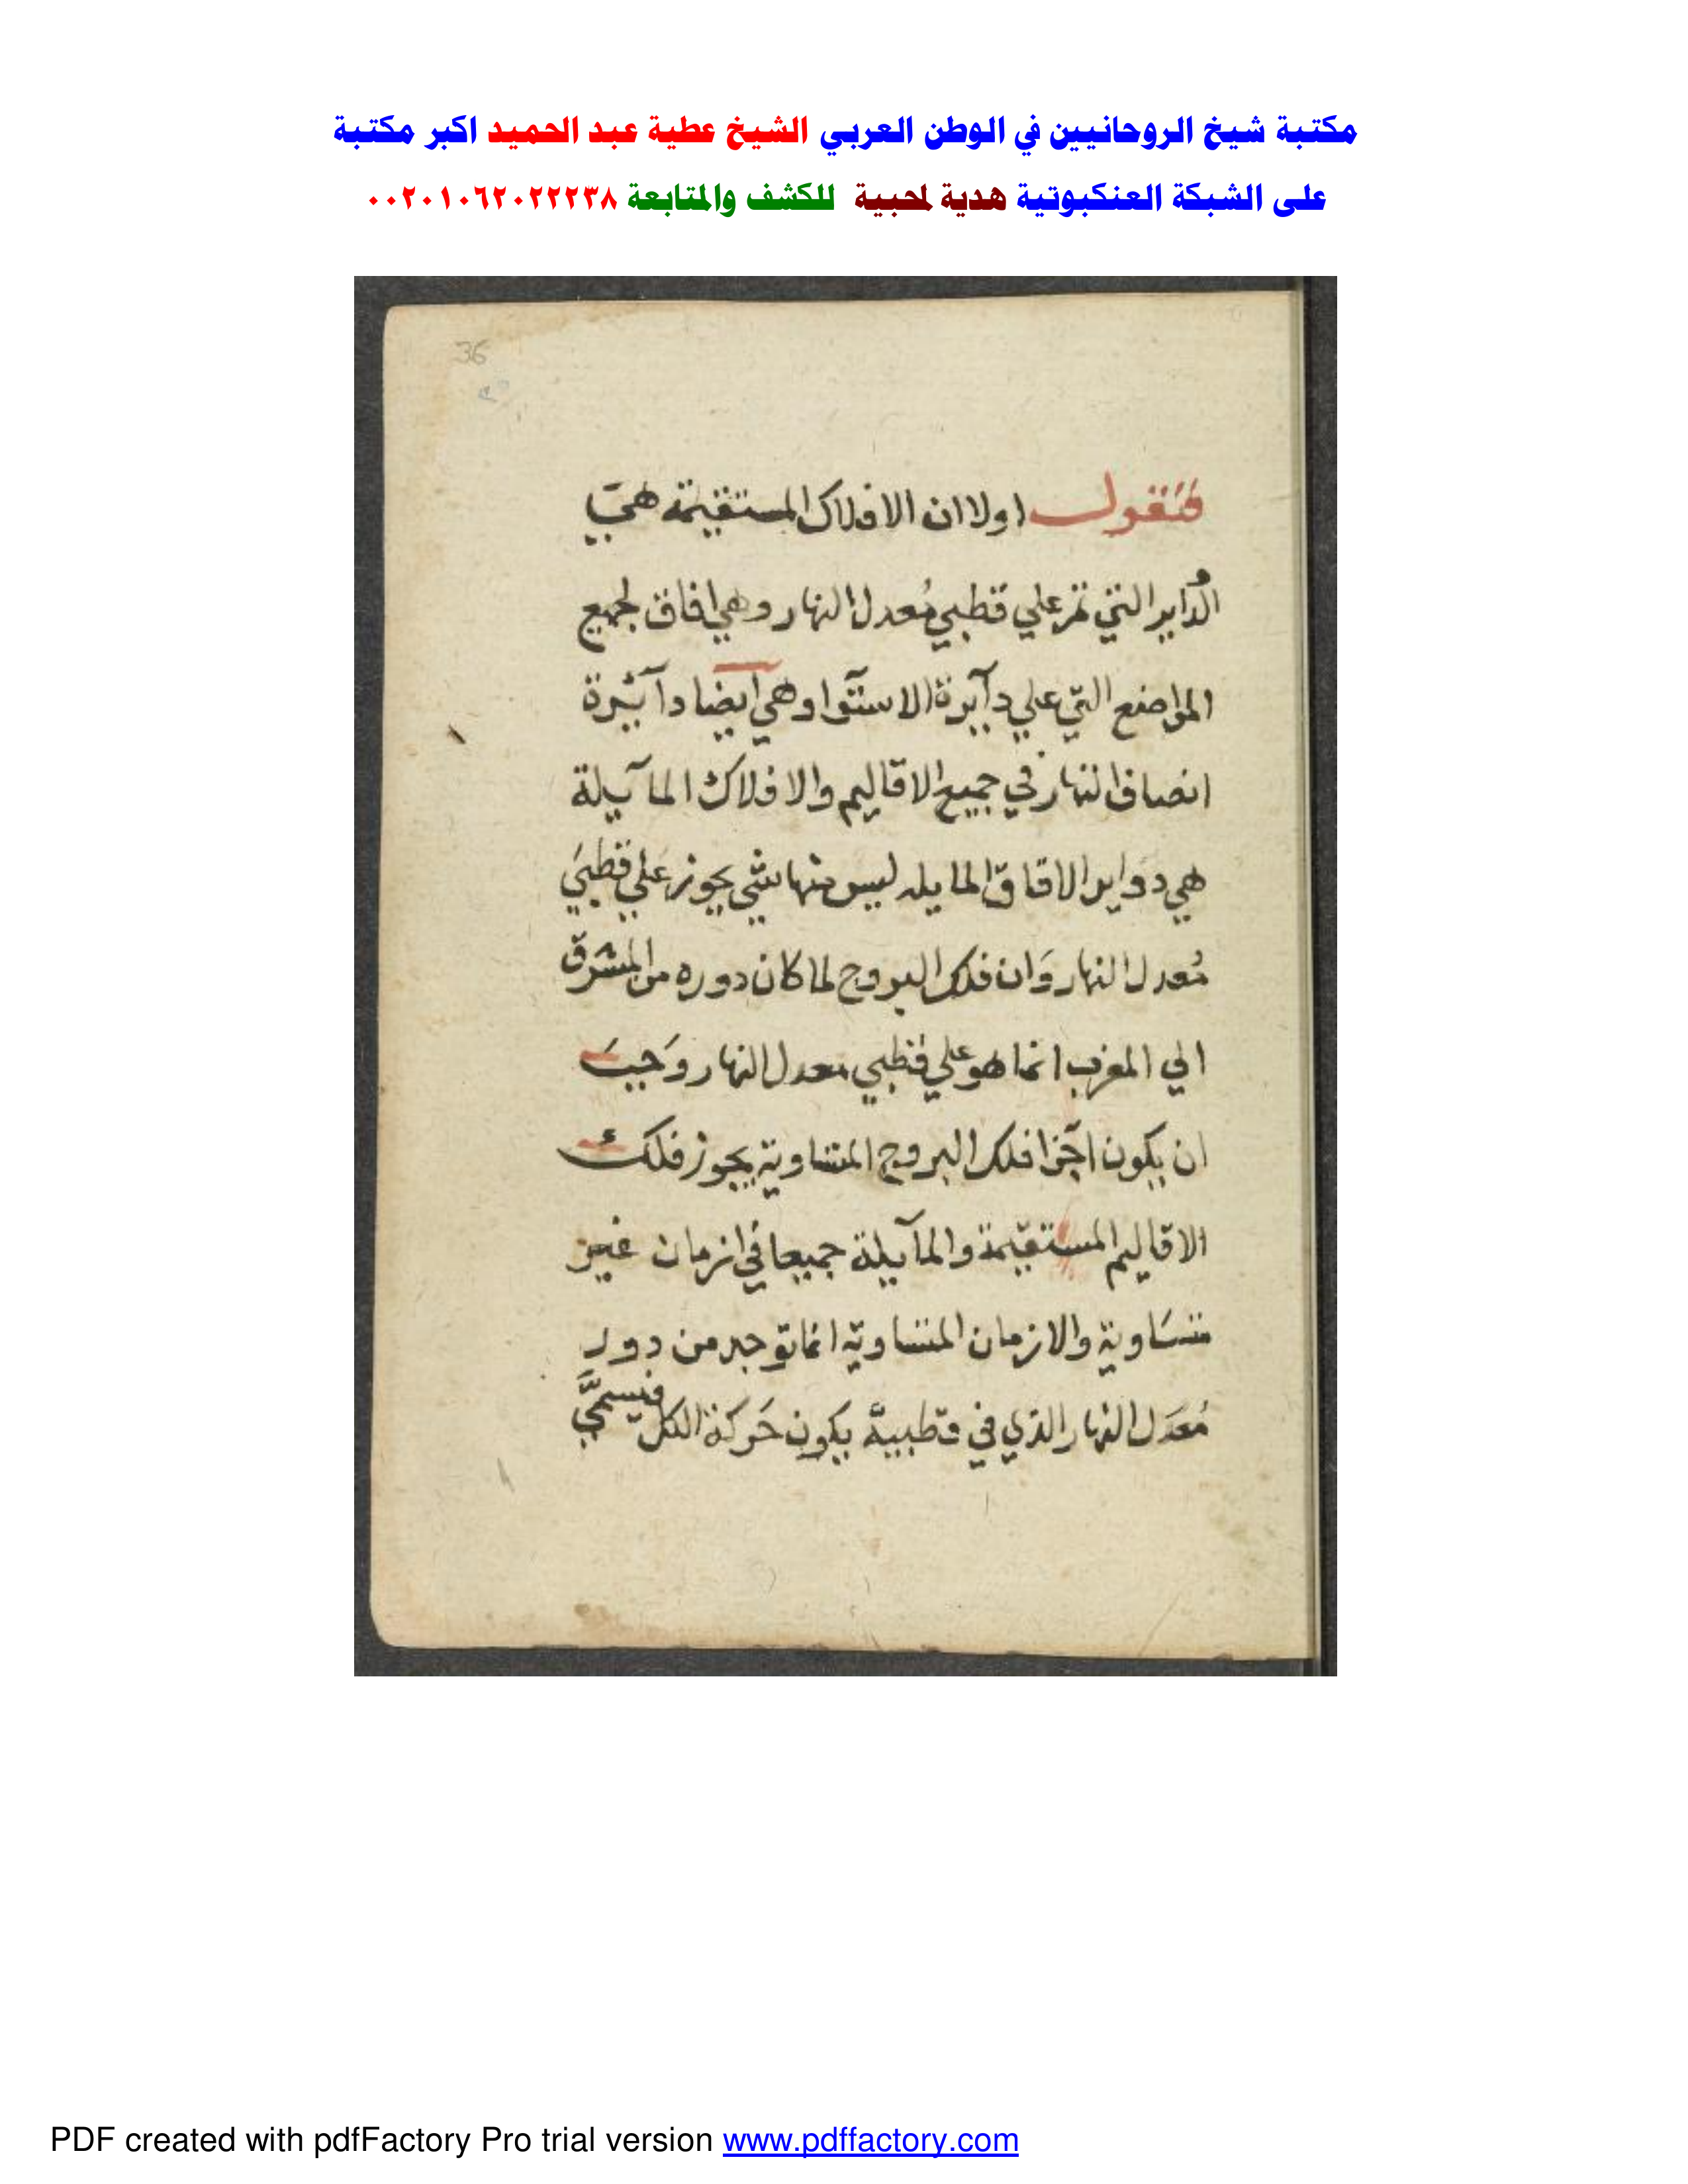 مكتبة شيخ الروحانيين في الوطن العربي الشيخ عطية عبد الحميد اكبر مكتبة
على الشبكة العنكبوتية هدية لمحبية للكشف والمتابعة ٠٠٢٠١٠٦٢٠٢٢٢٣٨
36
فنقول اولا ان الافلاك المستقيمة هي
الدٌاير التي تمر علي قطبي مُعدل النهار وهي افاق لجميع
المواضع التي علي دآيرة الاستوا وهي ايضا دآئيرة
انصاف النهار في جميع الاقاليم والافلاك المآيلة
هي دوايرالافاق المايله ليس منها شي يجوز علي قطبي
مُعدل النهار وَان فلك البروج لما كان دوره من المشرق
الي المغرب انما هو علي قطبي معدل النهار وَجبَ
ان يكون اجزا فلك البروج المتساوية يجوز فلك
الاقاليم المستقيمة والمآيلة جميعا في ازمان غير
متسَاوية والازمان المتساوية انما توجد من دور
مُعَدل النهار الذي في قطبيه يكون حَركة الكل فيسمي
PDF created with pdfFactory Pro trial version www.pdffactory.com